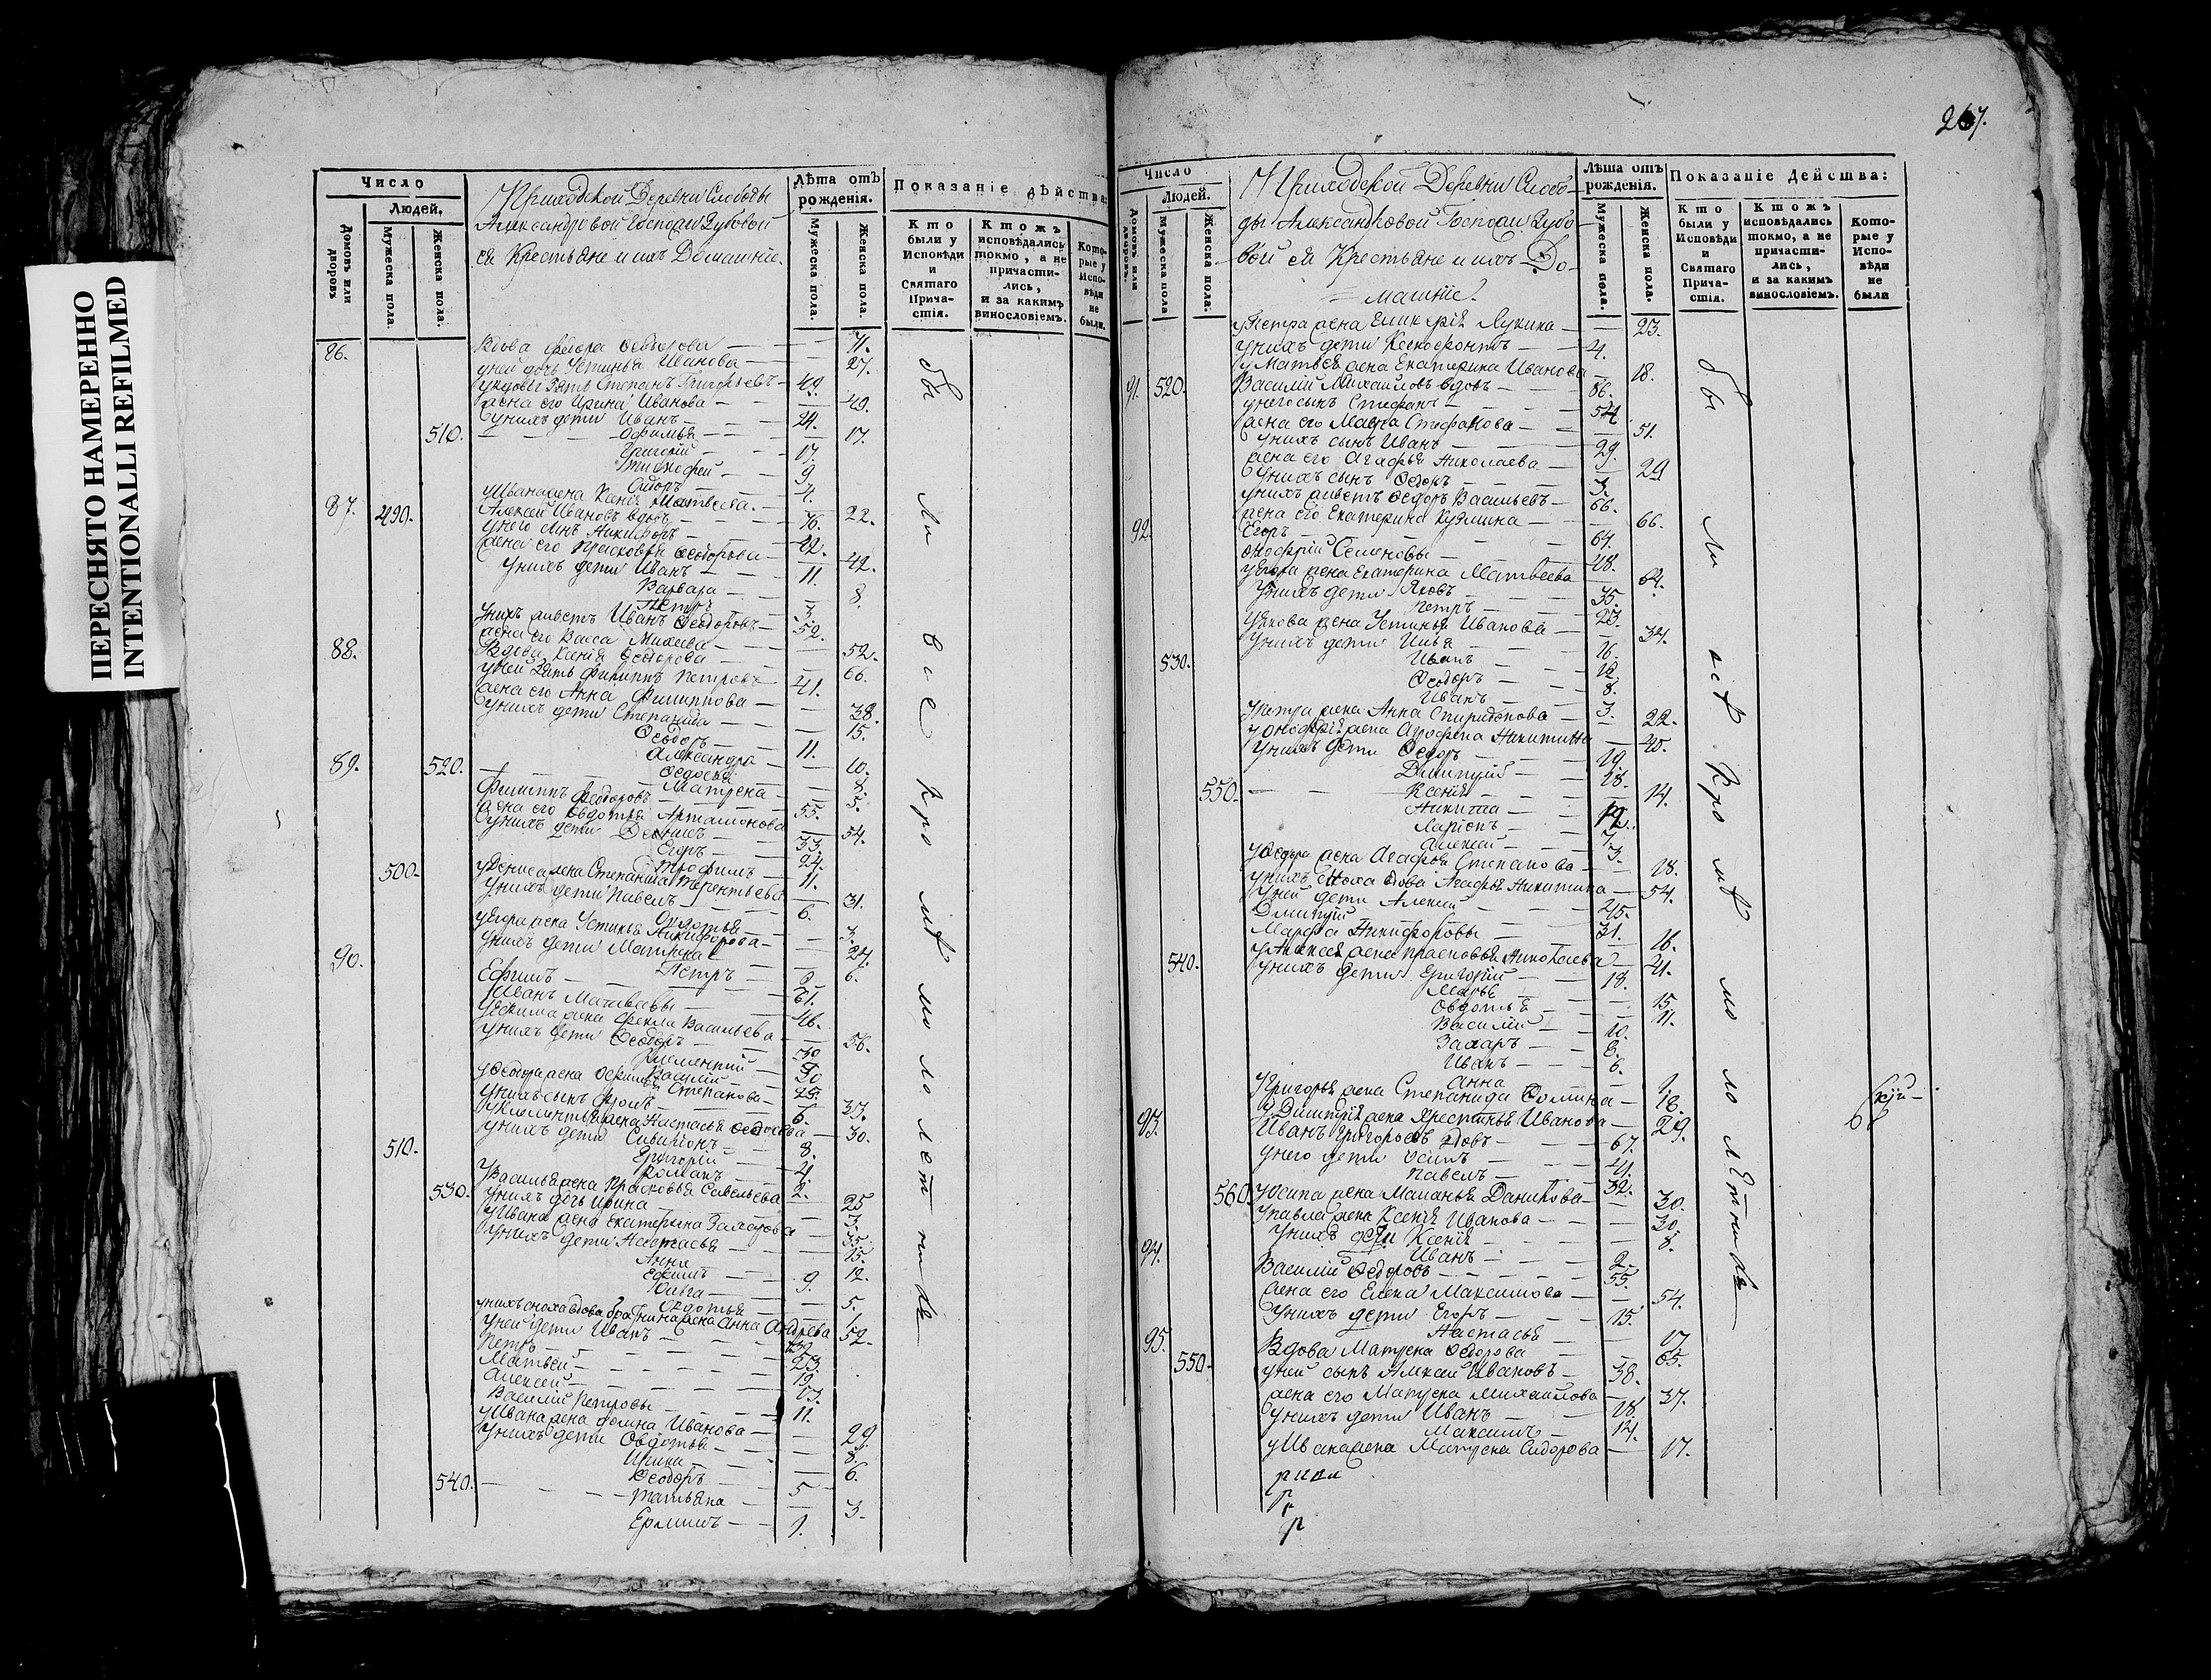 ПЕРЕСНЯТО НАМЕРЕННО
INTENTIONALLI REFILMED
Число
Людей.
Домовъ или дворовъ
Мужеска пола.
Женска пола:
Приходской Деревни Слободы
Александровой Госпожи Зубовой
ея Крестьяне и ихъ Домашнїе.
Лѣта отъ рожденїя.
Мужеска пола.
Женска пола.
Показанїе дѣйства:
Кто были у Исповѣди и Святаго Прича-стїя.
Ктожъ исповѣдались токмо, а не причасти-лись, и за какимъ винословїемъ.
Кото-рые у Испо-вѣди не были.
86. Вдова Ѳедора Ѳедорова 71.
у ней дочь Устинья Иванова 27.
Зять Степанъ Григорьевъ 49.
жена его Ирина Иванова 49.
у нихъ дети Иванъ 24.
510. Офимья 17.
Григорїй 17.
Тимофей 9
Сидоръ 4.
у Ивана жена Ксенїя Матвеева 22.
87. 490. Алексей Ивановъ вдовъ 76.
у него сынъ Никифоръ 42.
жена его Прасковья Ѳеодорова 42.
у нихъ дети Иванъ 11.
Варвара 8.
Петръ 3.
у нихъ живетъ Иванъ Ѳеодоровъ 52.
жена его Васса Михеева 52.
88. Вдова Ксенїя Ѳедорова 66.
у ней Зять Филиппъ Петровъ 41.
жена его Анна Филиппова 38.
у нихъ дети Степанида 15.
Ѳеодоръ 11.
Александра 10.
520. Ѳедосья 8.
Матрена 5.
89. Филиппъ Ѳеодоровъ 55.
жена его Овдотья Артамонова 54.
у нихъ дети Денисъ 33.
Егоръ 24.
500. Трофимъ 11.
у Дениса жена Степанида Терентьева 31.
у нихъ дети Павелъ 6.
Овдотья 3.
у Егора жена Устинья Никифорова 24.
у нихъ дети Матрена 6.
Петръ
90. Ефимъ 61.
Иванъ Матвеевы 46.
у Ефима жена Фекла Васильева 56.
у нихъ дети Ѳеодоръ
Климентїй 30
Василїй 25.
у Ѳеодора жена Степанова 37.
у нихъ сынъ Фролъ 6.
у Климентья жена Настасья 30.
у нихъ дети 8.
510. Григорїй 4.
Романъ 2.
у Василья жена Прасковья Савельева 25
530. у нихъ дочь Ирина 3.
у Ивана жена Екатерина 35.
у нихъ дети Настасья 15.
Анна 12.
Ефимъ 9.
5.
Овдотья 1.
у нихъ сноха вдова братнина жена Анна 52.
у ней дети Иванъ
Петръ 23.
Матвей 19.
Алексей 13.
Василїй Петровы 11.
у Ивана жена Иванова 29
у нихъ дети Овдотья 8.
Ирина 6.
Ѳеодоръ 5
540. Татьяна 3.
Ермилъ 1.
бы ли все Кро мѣ мо ло лет ни хъ
267.
Число
Людей.
Домовъ или дворовъ.
Мужеска пола
Женска пола.
Приходской Деревни Слобо-
ды Александровой Госпожи Зубо-
вой ея Крестьяне и ихъ До-
машнїе.
Лѣта отъ рожденїя.
Мужеска пола.
Женска пола.
Показанїе Дейсшва:
Кто были у Исповѣди и Святаго Прича-стїя.
Ктожъ исповѣдались токмо, а не причасти-лись, и за какимъ винословїемъ.
Кото-рые у Испо-вѣди не были
у Петра жена Лукина 23.
у нихъ дети Ксенофонтъ 4.
у Матвея жена Екатерина Иванова 18.
91. 520. Василїй Михаиловъ вдовъ 86.
у него сынъ Стефанъ 54
жена его Стефанова 51.
у нихъ сынъ Иванъ 29.
жена его Агафья Николаева 29
у нихъ сынъ Ѳедоръ 3.
у нихъ живетъ Ѳедоръ Васильевъ 66.
жена его Екатерина Кузмина 66.
92. Егоръ 64.
Онофрїй Семеновы 48.
у Егора жена Екатерина Матвеева 64.
у нихъ дети Яковъ 35.
Петръ 23.
у Якова жена Устинья Иванова 34.
у нихъ дети Илья 16.
530. Иванъ 12.
Ѳеодоръ 8.
Иванъ 3.
у Петра жена Анна Спиридонова 22.
у Онофрїя жена Агрофена Никитина 45.
у нихъ дети Ѳедоръ 19.
Дмитрїй 18.
550. Ксенїя 14.
Никита 12.
Ларїонъ 7.
Алексей 3.
у Ѳедора жена Агафья Степанова 18.
у нихъ сноха вдова Агафья Никитина 54.
у ней дети Алексей 45.
Дмитрїй 31.
Марфа Никифоровы 16.
у Алексея жена Прасковья Николаева 41.
540. у нихъ дети Григорїй 18.
Марья 15
Овдотья 11.
Василїй 10.
Захаръ 8.
Иванъ 6.
Анна 1.
у Григорья жена Степанида Фомина 18.
у Димитрїя жена Крестинья Иванова 29.
93. Иванъ Григорьевъ вдовъ 67.
у него дети Осипъ 41.
Павелъ 32.
560. у Осипа жена Маланья Данилова 30.
у Павла жена Ксенїя Иванова 30.
у нихъ дети Ксенїя 8.
Иванъ 2.
94. Василїй Ѳедоровъ 55.
жена его Елена Максимова 54.
у нихъ дети Егоръ 15.
Настасья 17
95. Вдова Матрена Ѳедорова 65.
550. у ней сынъ Алексей Ивановъ 38.
жена его Матрена Михаилова 37.
у нихъ дети Иванъ 18.
Максимъ 14.
у Ивана жена Матрена Сидорова 17.
бы ли всѣ Кро мѣ мо ло лѣтни хъ